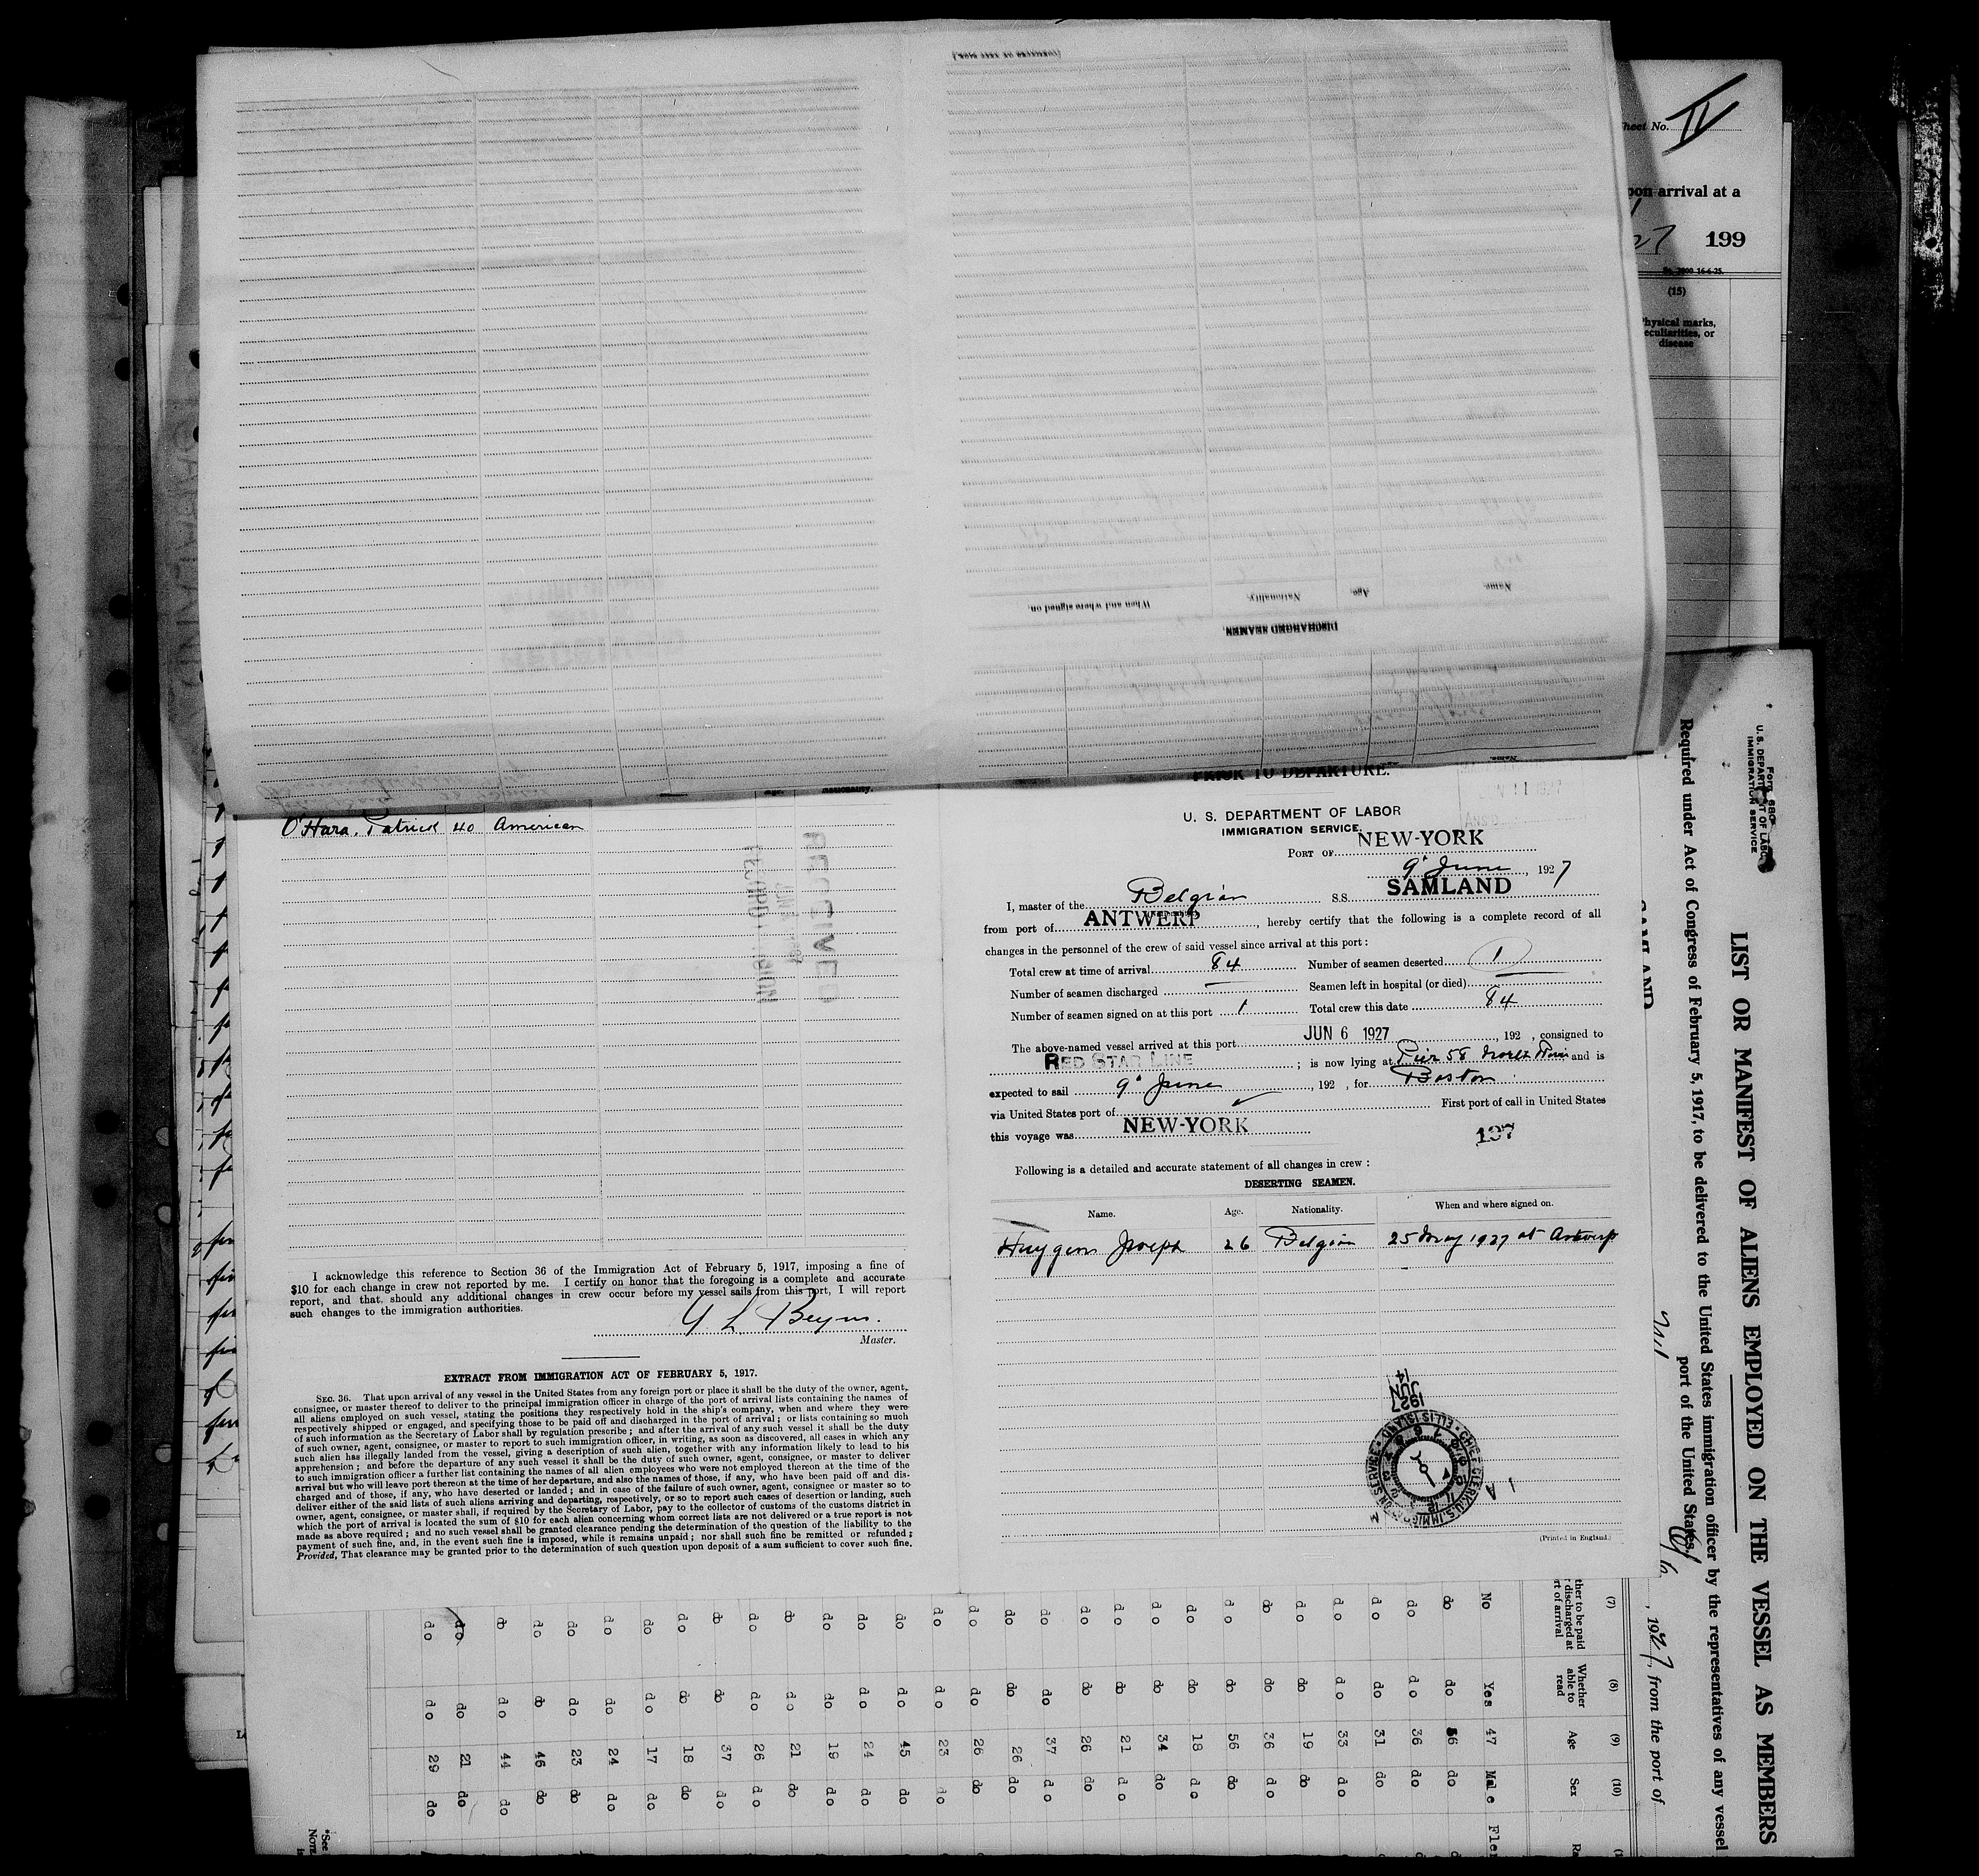 Sheet No. IV
upon arrival at a
27 199
(15)
Physical marks,
peculiarities, or
disease
When and where signed on.
Nationality.
Age.
Name.
DISCHARGED SEAMEN.
O'Hara, Patrick 40 American
RECEIVED
JUN
RECORD DIVISION
I acknowledge this reference to Section 36 of the Immigration Act of February 5, 1917, imposing a fine of
$10 for each change in crew not reported by me. I certify on honor that the foregoing is a complete and accurate
report, and that, should any additional changes in crew occur before my vessel sails from this port, I will report
such changes to the immigration authorities.
Master.
EXTRACT FROM IMMIGRATION ACT OF FEBRUARY 5, 1917.
SEC. 36. That upon arrival of any vessel in the United States from any foreign port or place it shall be the duty of the owner, agent,
consignee, or master thereof to deliver to the principal immigration officer in charge of the port of arrival lists containing the names of
all aliens employed on such vessel, stating the positions they respectively hold in the ship's company, when and where they were
respectively shipped or engaged, and specifying those to be paid off and discharged in the port of arrival; or lists containing so much
of such information as the Secretary of Labor shall by regulation prescribe; and after the arrival of any such vessel it shall be the duty
of such owner, agent, consignee, or master to report to such immigration officer, in writing, as soon as discovered, all cases in which any
such alien has illegally landed from the vessel, giving a description of such alien, together with any information likely to lead to his
apprehension; and before the departure of any such vessel it shall be the duty of such owner, agent, consignee, or master to deliver
to such immigration officer a further list containing the names of all alien employees who were not employed thereon at the time of the
arrival but who will leave port thereon at the time of her departure, and also the names of those, if any, who have been paid off and dis-
charged and of those, if any, who have deserted or landed; and in case of the failure of such owner, agent, consignee or master so to
deliver either of the said lists of such aliens arriving and departing, respectively, or so to report such cases of desertion or landing, such
owner, agent, consignee, or master shall, if required by the Secretary of Labor, pay to the collector of customs of the customs district in
which the port of arrival is located the sum of $10 for each alien concerning whom correct lists are not delivered or a true report is not
made as above required; and no such vessel shall be granted clearance pending the determination of the question of the liability to the
payment of such fine, and, in the event such fine is imposed, while it remains unpaid; nor shall such fine be remitted or refunded;
Provided, That clearance may be granted prior to the determination of such question upon deposit of a sum sufficient to cover such fine.
PRIOR TO DEPARTURE.
U. S. DEPARTMENT OF LABOR
IMMIGRATION SERVICE.
PORT OF NEW-YORK
9 June, 1927
I, master of the Belgian S.S. SAMLAND
from port of ANTWERP, hereby certify that the following is a complete record of all
changes in the personnel of the crew of said vessel since arrival at this port:
Total crew at time of arrival 84 Number of seamen deserted 1
Number of seamen discharged Seamen left in hospital (or died)
Number of seamen signed on at this port 1 Total crew this date 84
The above-named vessel arrived at this port JUN 6 1927, 192 , consigned to
RED STAR LINE; is now lying at Pier 58 North River and is
expected to sail 9 June, 192 , for Boston
via United States port of First port of call in United States
this voyage was NEW-YORK
137
Following is a detailed and accurate statement of all changes in crew:
DESERTING SEAMEN.
Name. Age. Nationality. When and where signed on.
Huygens Joseph 26 Belgian 25 May 1927 at Antwerp
1927
JUN
14
(Printed in England.)
Form 680
U. S. DEPARTMENT OF LABOR
IMMIGRATION SERVICE
LIST OR MANIFEST OF ALIENS EMPLOYED ON THE VESSEL AS MEMBERS
Required under Act of Congress of February 5, 1917, to be delivered to the United States immigration officer by the representatives of any vessel
port of the United States.
SAMLAND
, 1927, from the port of
(7) (8) (9) (10)
Whether able to read
Age
Sex
No Yes 47 Male
do do 56 do
do do 36 do
do do 31 do
do do 33 do
do do 19 do
do do 36 do
do do 56 do
do do 18 do
do do 34 do
do do 21 do
do do 26 do
do do 37 do
do do 26 do
do do 26 do
do do 23 do
do do 45 do
do do 24 do
do do 19 do
do do 21 do
do do 26 do
do do 37 do
do do 18 do
do do 17 do
do do 24 do
do do 23 do
do do 46 do
do do 44 do
do do 21 do
do do 29 do